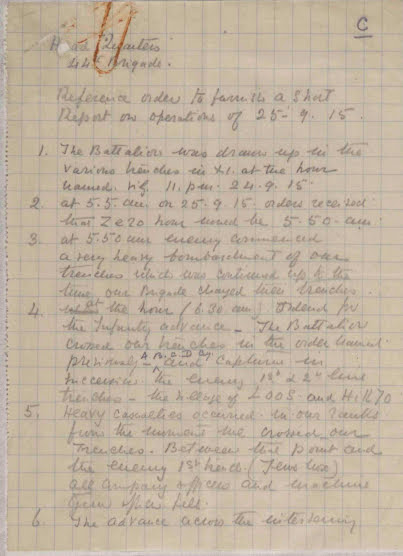 C
Head Quarters
44th Brigade.
Reference order to furnish a Short
Report on operations of 25-9.15.
1. The Battalion was drawn up in the
various trenches in X1. at the hour
named. viz. 11. pm. 24.9.15.
2. at 5.5. am on 25.9.15. orders received
that Zero hour would be 5-50-am.
3. at 5.50 am enemy commenced
a very heavy bombardment of our
trenches which was continued up to the
time our Brigade charged their trenches.
4. at the hour (6.30 am) ordered for
the Infantry advance - The Battalion
crossed our trenches in the order named
previously - A.B.C.D Coy and captured in
succession the enemy 1st & 2nd line
trenches - the village of LOOS and Hill 70
5. Heavy casualties occurred in our ranks
from the moment we crossed our
Trenches. Between that point and
the enemy 1st trench
all Company officers and machine
Gun officer fell.
6. The advance across the intervening